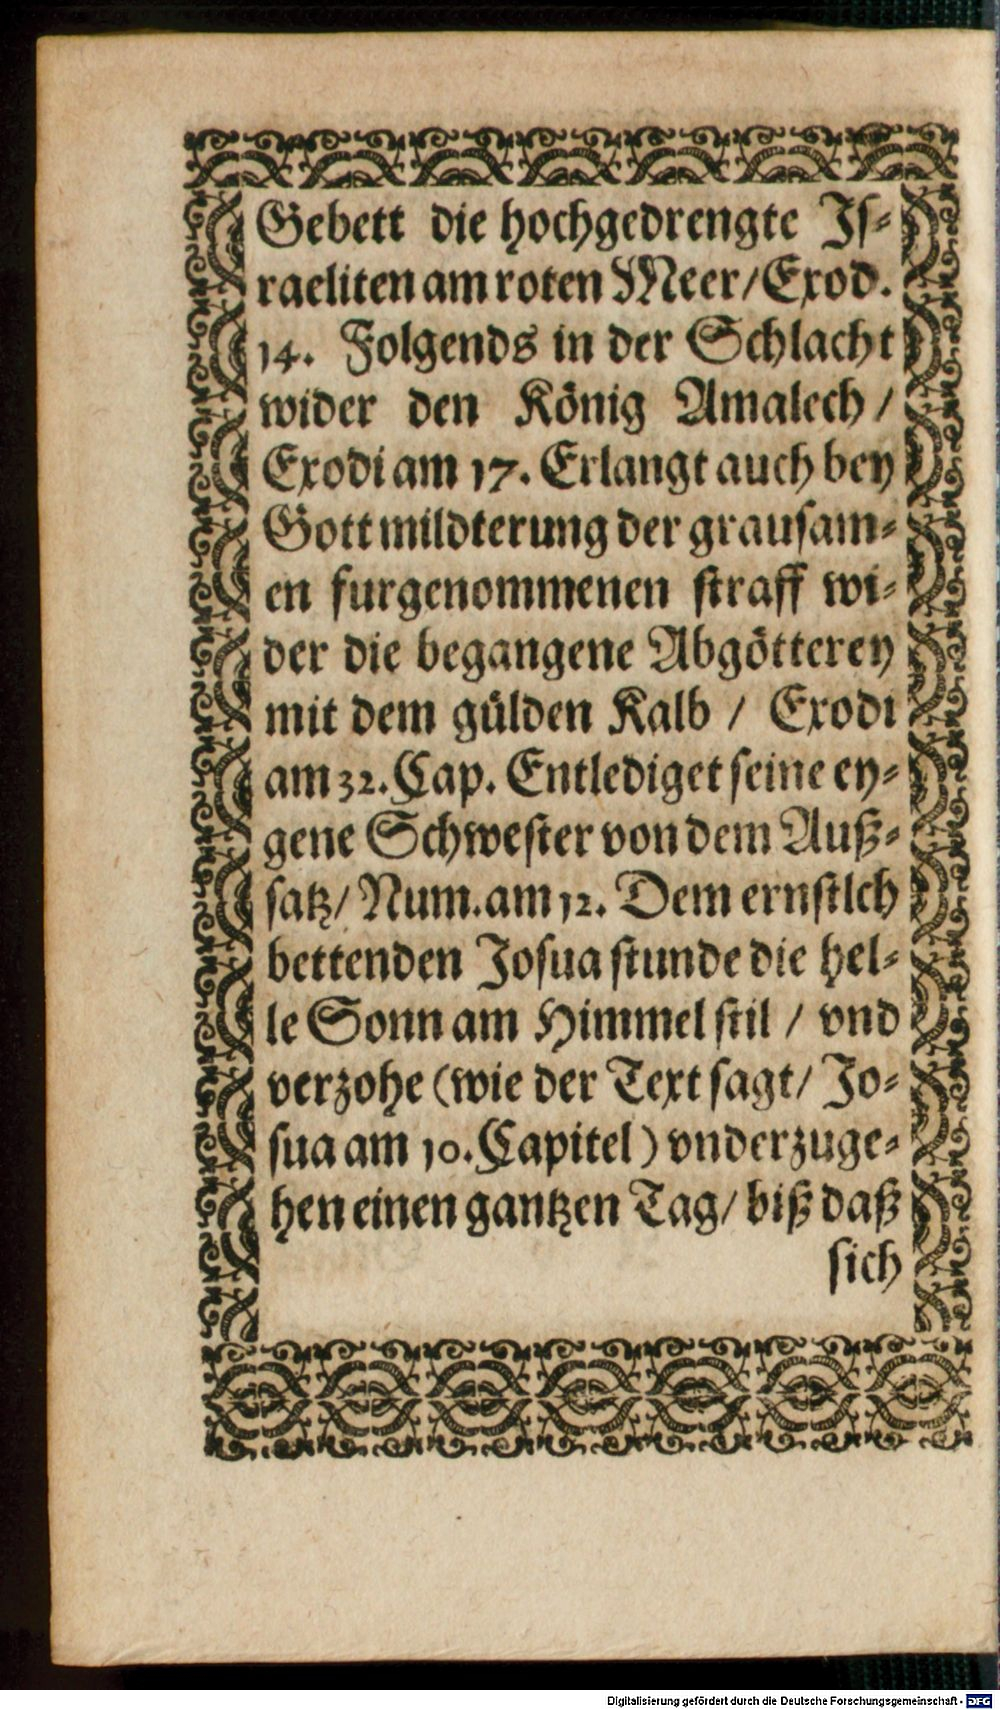 Gebett die hochgedrengte Jſ-
raeliten am roten Meer/Exod.
14. Folgends in der Schlacht
wider den König Amalech /
Exodi am 17. Erlangt auch bey
Gott mildterung der grauſam-
en furgenommenen ſtraff wi-
der die begangene Abgötterey
mit dem gülden Kalb / Exodi
am 32. Cap. Entlediget ſeine ey-
gene Schweſter von dem Auß-
ſatz/ Num. am 12. Dem ernſtlch
bettenden Joſua ſtunde die hel-
le Sonn am Himmel ſtil / vnd
verzohe (wie der Text ſagt/ Jo-
ſua am 10. Capitel) vnderzuge-
hen einen gantzen Tag/ biß daß
ſich
Digitalisierung gefördert durch die Deutsche Forschungsgemeinschaft - DFG